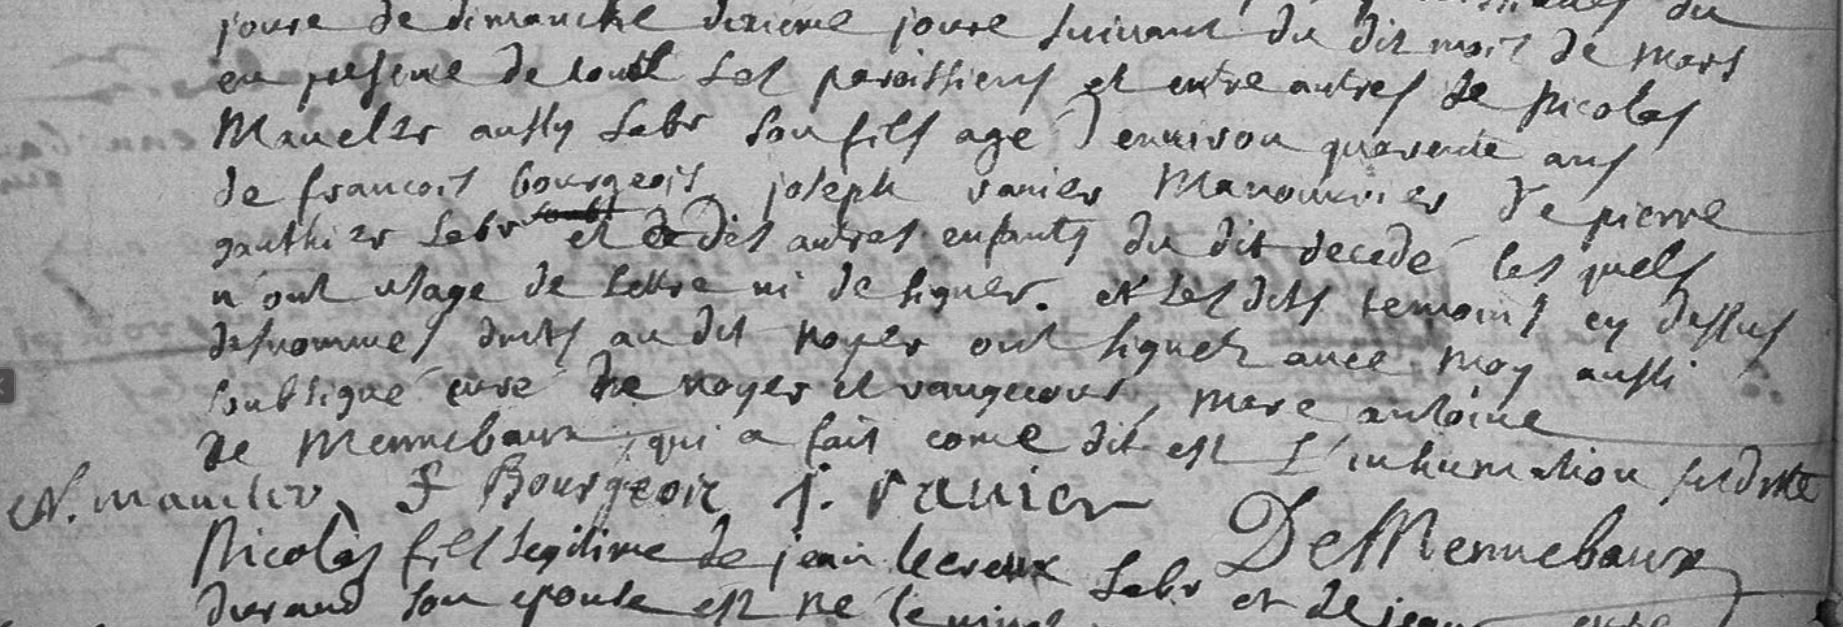 du
joure de dimanche dixieme joure suivant du dit mois de mars
en presence de touts les paroissiens et entre autres de Nicolas
Maucler aussy labr son fils agé d environ quarente ans
de francois bourgeois joseph vanier Manouvrier de pierre
gauthier labr et de des autres enfants du dit decedé les quels
n'ont usage de lettre ni de signer. et les dits temoins cy dessus
desnommes dits au dit noyer ont signer avec moy aussi
soubsigné curé de noyer et vangecour, marc antoine
de Mennebaux qui a fait come dit est l'inhumation susditte
N. mauclер F Bourgeoir j. vanier
DeMennebaux
Nicolas fils legitime de jean lecreux labr et de jeanne
durand son epouse est né le